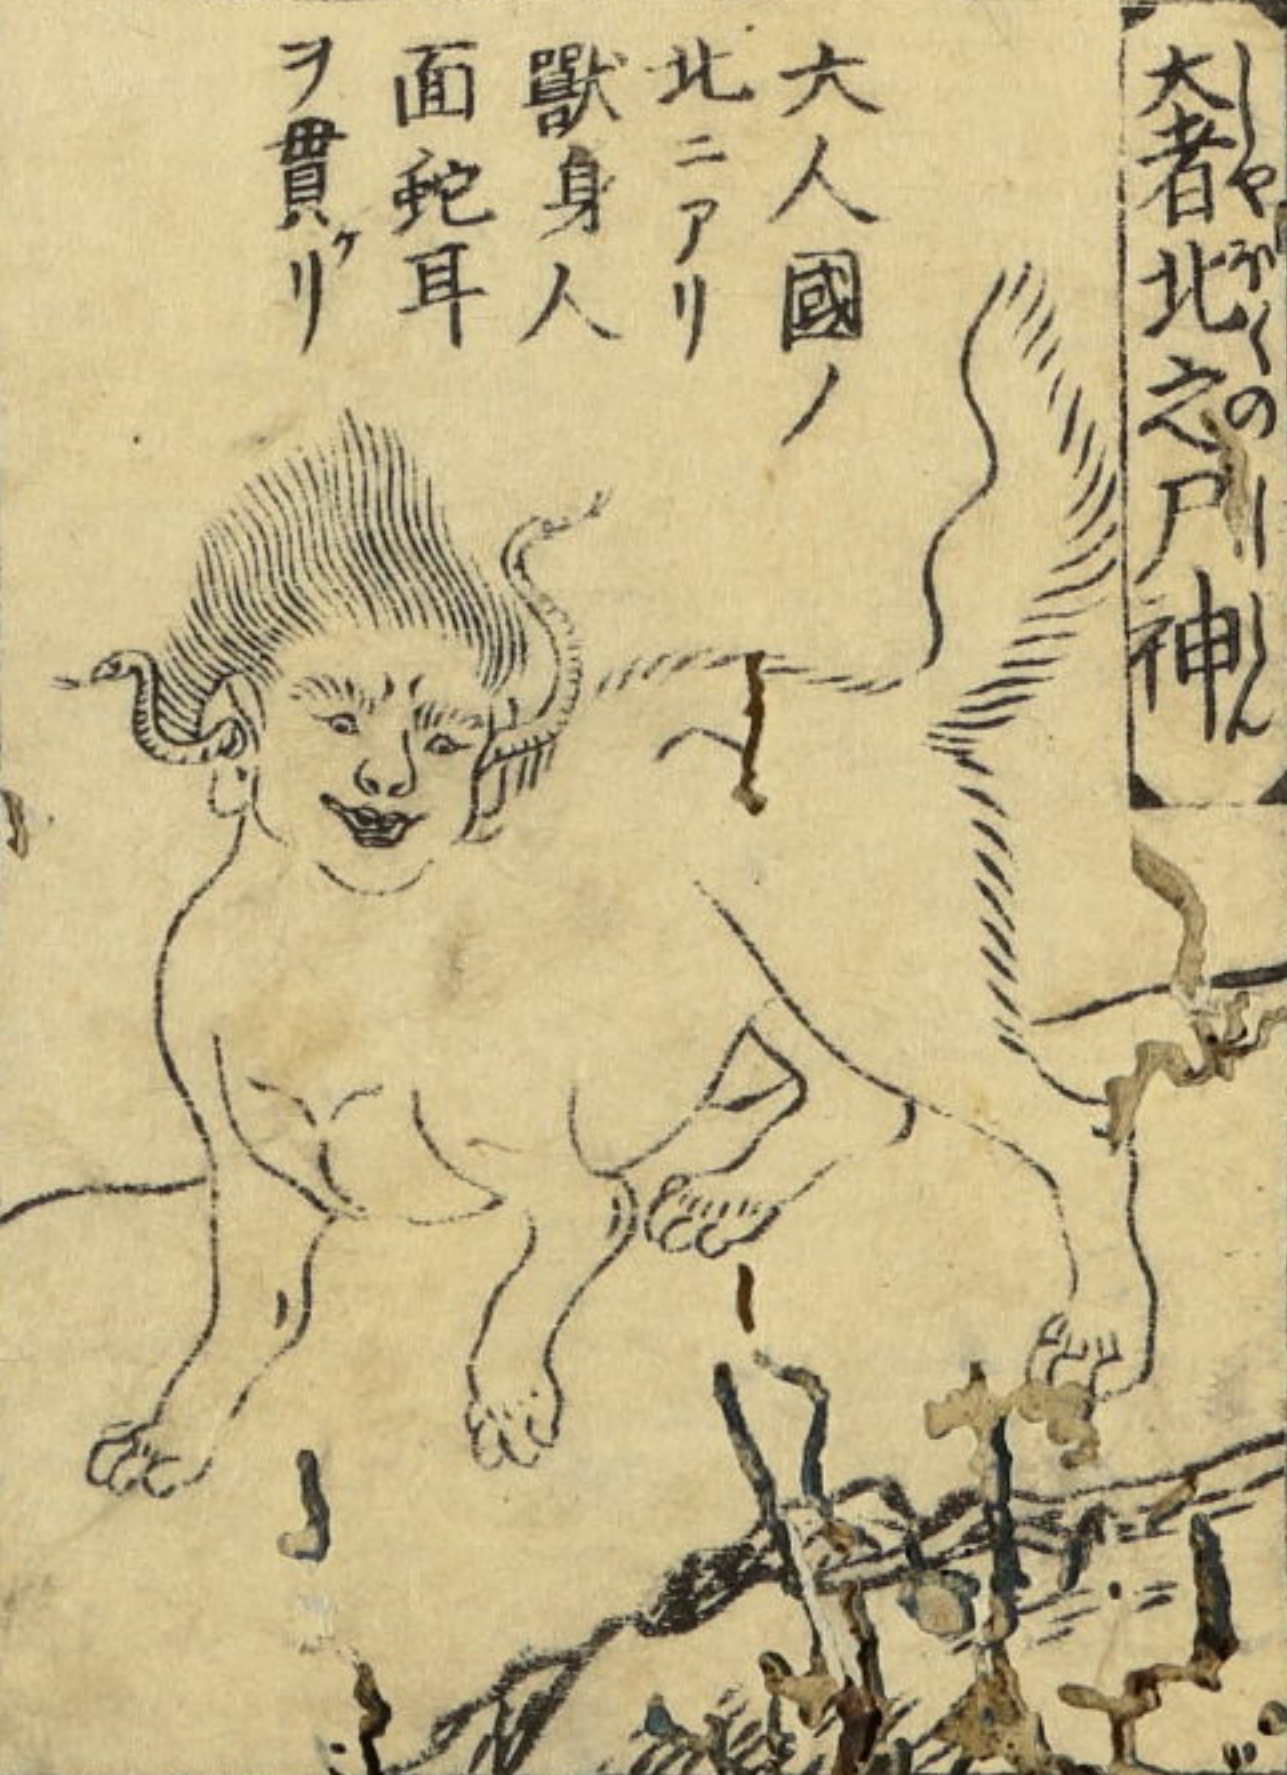 奢北之尸神
しやほくのししん
大人國ノ
北ニアリ
獸身人
面蛇耳
ヲ貫ケリ